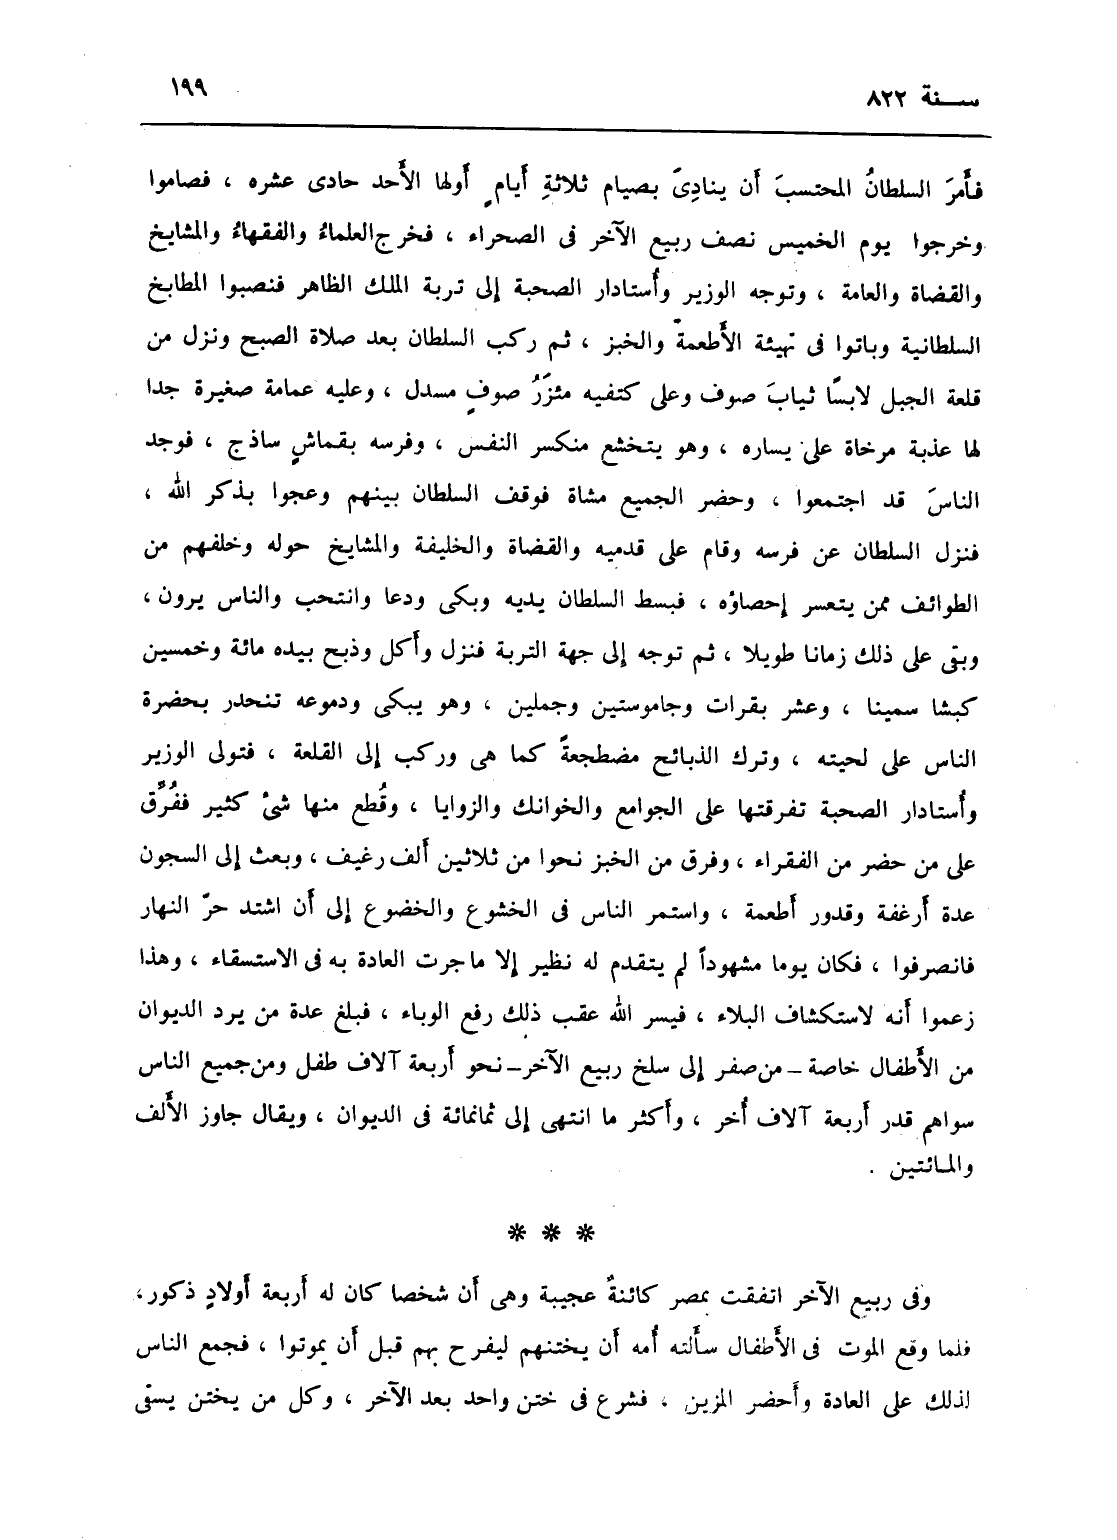 سنة ٨٢٢
١٩٩
فأَمرَ السلطانُ المحتسبَ أن ينادِىَ بصيام ثلاثةِ أيامٍ أولها الأَحد حادى عشره ، فصاموا
وخرجوا يوم الخميس نصف ربيع الآخر فى الصحراء ، فخرج العلماءُ والفقهاءُ والمشايخ
والقضاة والعامة ، وتوجه الوزير وأُستادار الصحبة إلى تربة الملك الظاهر فنصبوا المطابخ
السلطانية وباتوا فى تهيئة الأَطعمة والخبز ، ثم ركب السلطان بعد صلاة الصبح ونزل من
قلعة الجبل لابسًا ثيابَ صوف وعلى كتفيه مئزَرُ صوفٍ مسدل ، وعليه عمامة صغيرة جدا
لها عذبة مرخاة على يساره ، وهو يتخشع منكسر النفس ، وفرسه بقماشٍ ساذج ، فوجد
الناسَ قد اجتمعوا ، وحضر الجميع مشاة فوقف السلطان بينهم وعجوا بذكر الله ،
فنزل السلطان عن فرسه وقام على قدميه والقضاة والخليفة والمشايخ حوله وخلفهم من
الطوائف ممن يتعسر إحصاؤه ، فبسط السلطان يديه وبكى ودعا وانتحب والناس يرون ،
وبقى على ذلك زمانا طويلا ، ثم توجه إلى جهة التربة فنزل وأكل وذبح بيده مائة وخمسين
كبشا سمينا ، وعشر بقرات وجاموستين وجملين ، وهو يبكى ودموعه تنحدر بحضرة
الناس على لحيته ، وترك الذبائح مضطجعةً كما هى وركب إلى القلعة ، فتولى الوزير
وأُستادار الصحبة تفرقتها على الجوامع والخوانك والزوايا ، وقُطع منها شئ كثير ففُرِّق
على من حضر من الفقراء ، وفرق من الخبز نحوا من ثلاثين ألف رغيف ، وبعث إلى السجون
عدة أرغفة وقدور أطعمة ، واستمر الناس فى الخشوع والخضوع إلى أن اشتد حرّ النهار
فانصرفوا ، فكان يوما مشهوداً لم يتقدم له نظير إلا ما جرت العادة به فى الاستسقاء ، وهذا
زعموا أنه لاستكشاف البلاء ، فيسر الله عقب ذلك رفع الوباء ، فبلغ عدة من يرد الديوان
من الأَطفال خاصة – من صفر إلى سلخ ربيع الآخر – نحو أربعة آلاف طفل ومن جميع الناس
سواهم قدر أربعة آلاف أُخر ، وأكثر ما انتهى إلى ثمانمائة فى الديوان ، ويقال جاوز الأَلف
والمائتين .
* * *
وفى ربيع الآخر اتفقت بمصر كائنةٌ عجيبة وهى أن شخصا كان له أربعة أولادٍ ذكور،
فلما وقع الموت فى الأَطفال سأَلته أُمه أن يختنهم ليفرح بهم قبل أن يموتوا ، فجمع الناس
لذلك على العادة وأَحضر المزين ، فشرع فى ختن واحد بعد الآخر ، وكل من يختن يسقى